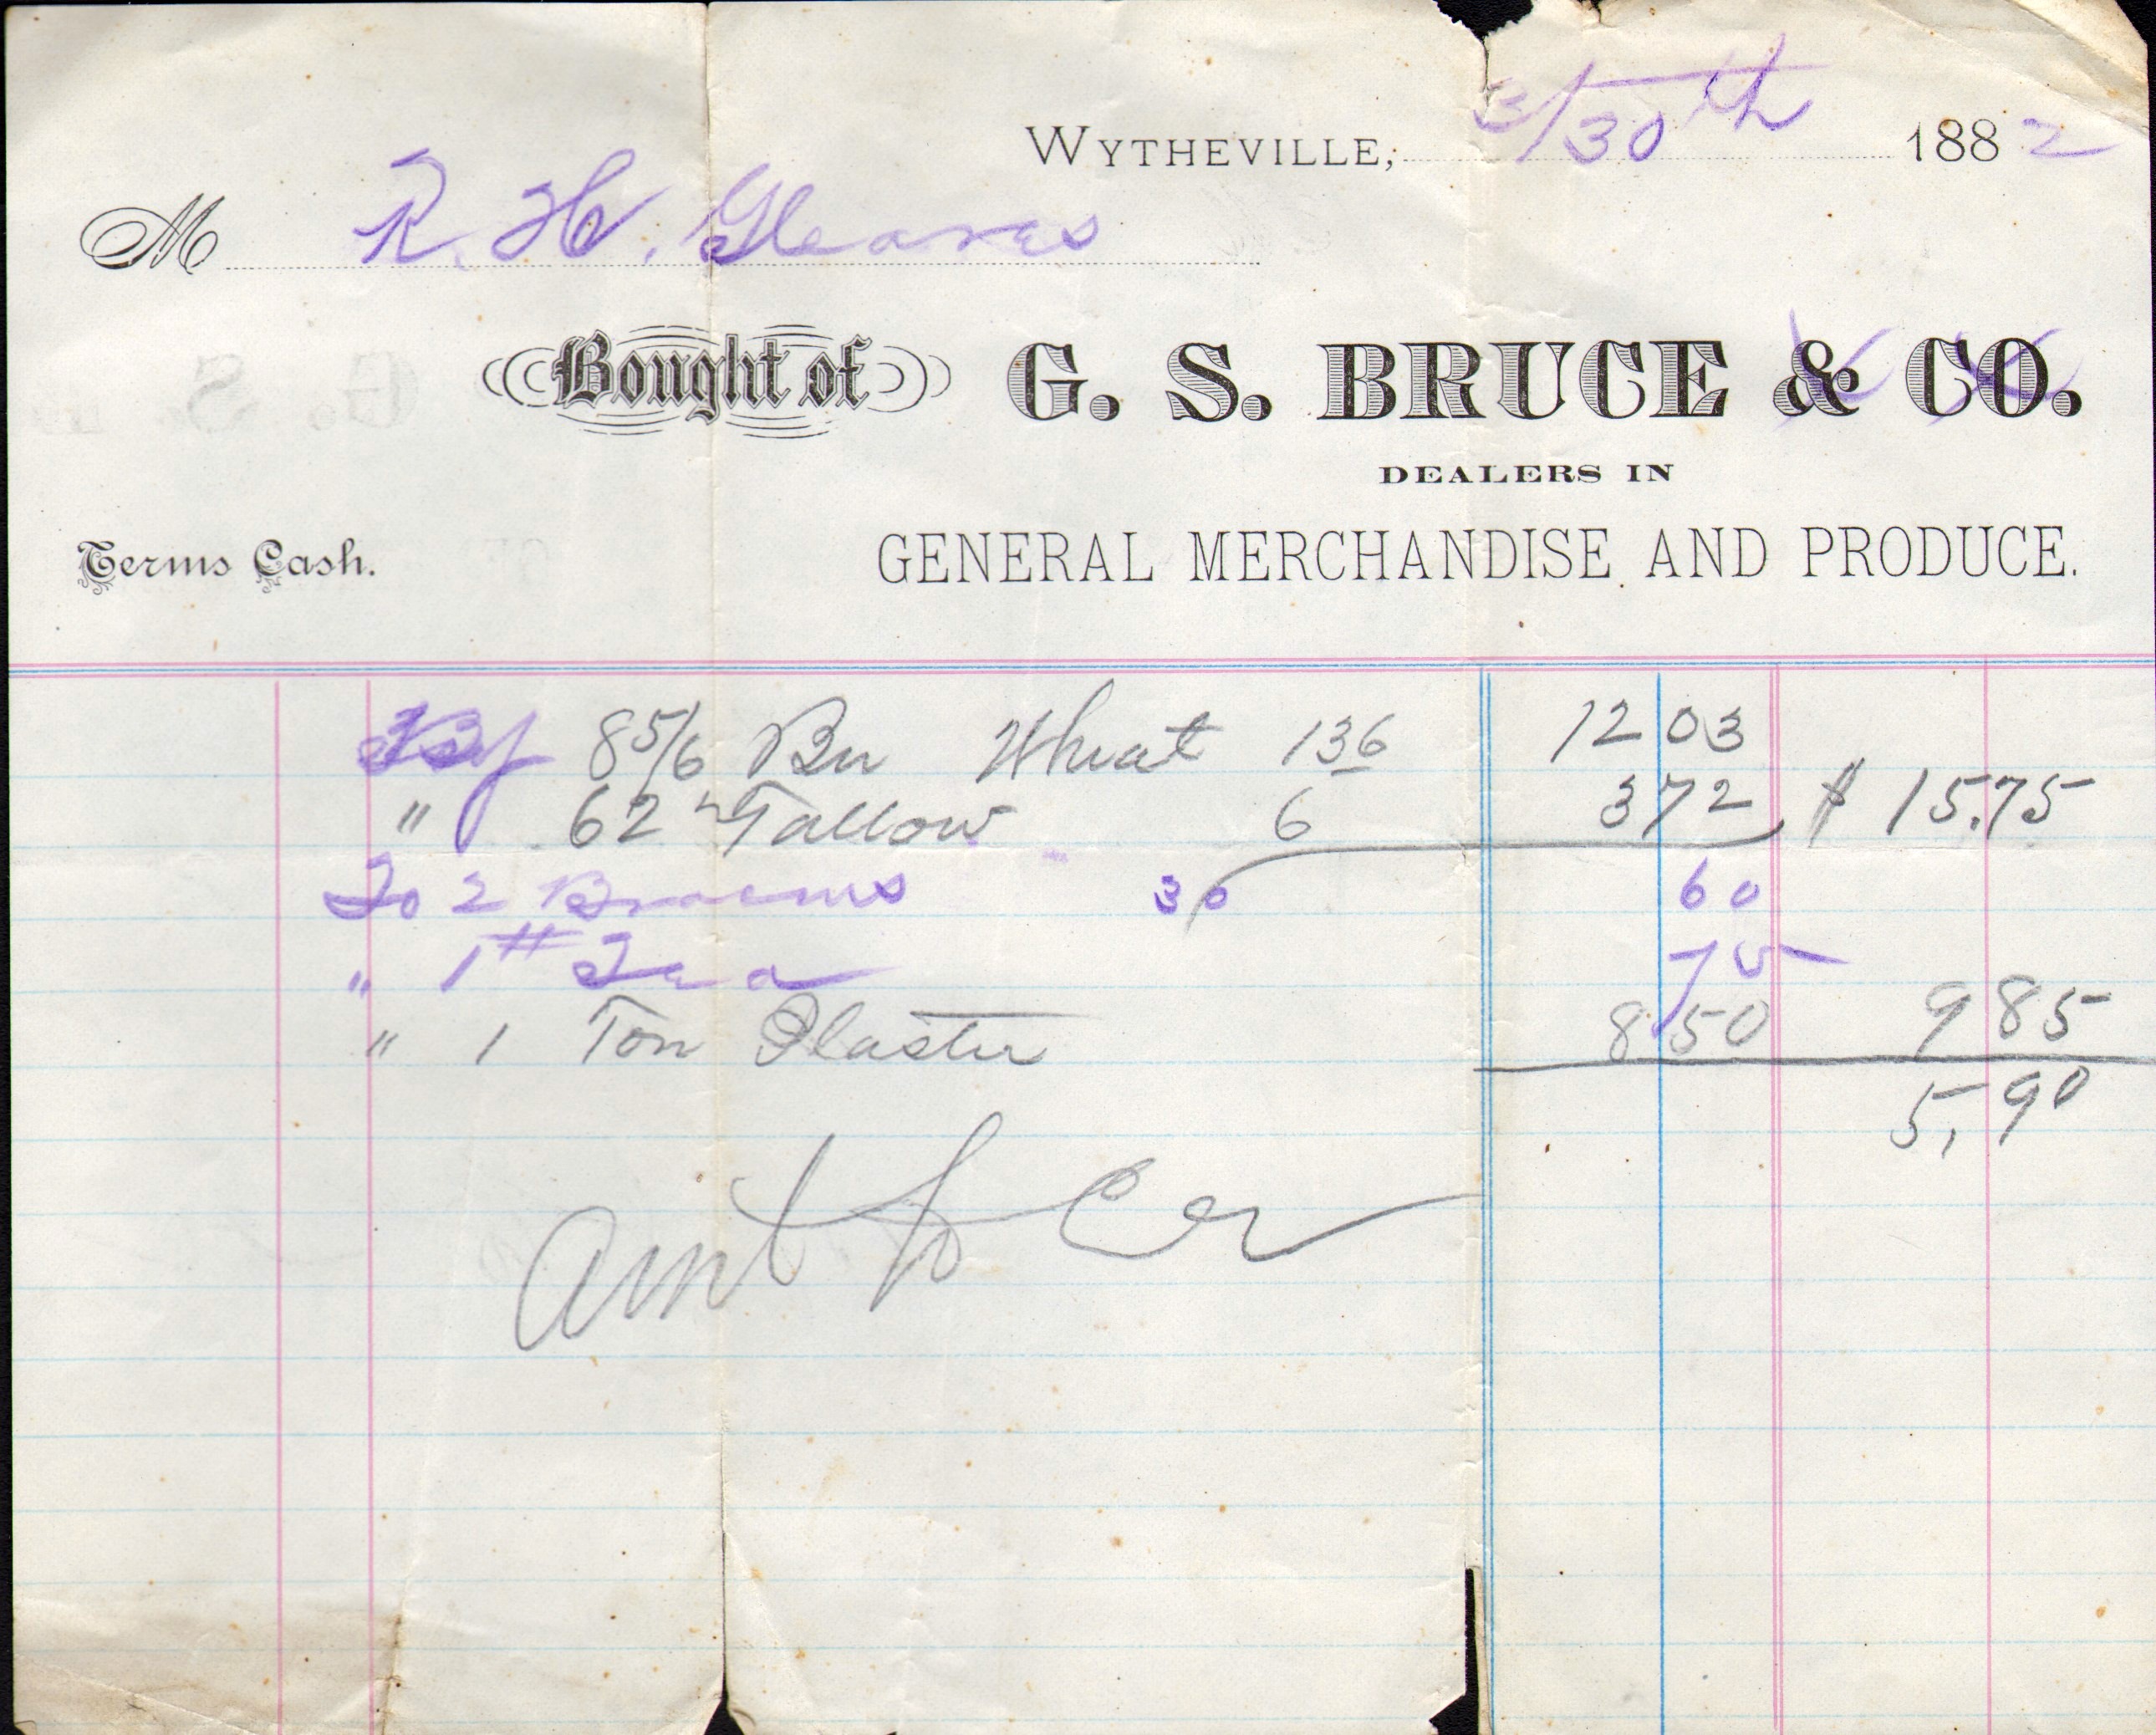 WYTHEVILLE, 3/30th 1882
M R. H. Gleaves
Bought of G. S. BRUCE & CO.
DEALERS IN
Terms Cash. GENERAL MERCHANDISE AND PRODUCE.
By 8 5/6 Bu Wheat 136 12 03
" 62 Tallow 6 3 72 $ 15.75
To 2 Brooms 30 60
" 1# Tea 75
" 1 Ton Plaster 8 50 9 85
5,90
Amt to Cr